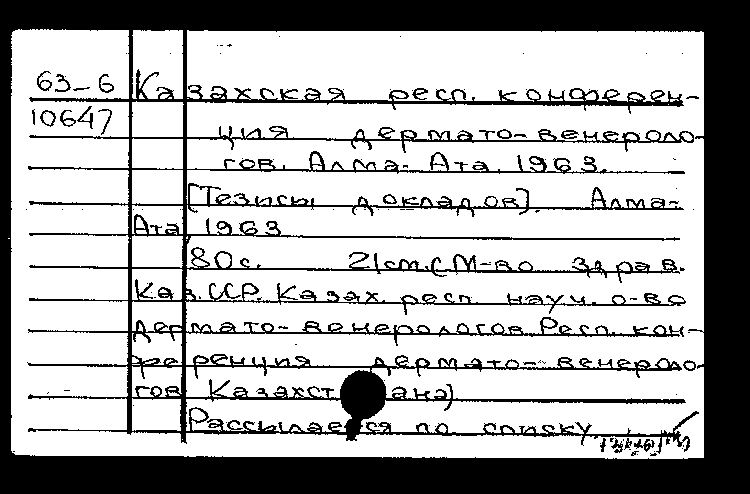 63-6 Казахская респ. конферен-
10647
ция дермато-венероло-
гов. Алма-Ата. 1963.
[Тезисы докладов]. Алма-
Ата 1963
80с. 21см. (М-во здрав.
Каз.ССР. Казах. респ. науч. о-во
дермато-венерологов. Респ. кон-
ференция дермато-венероло-
гов Казахстана)
Рассылается по списку.